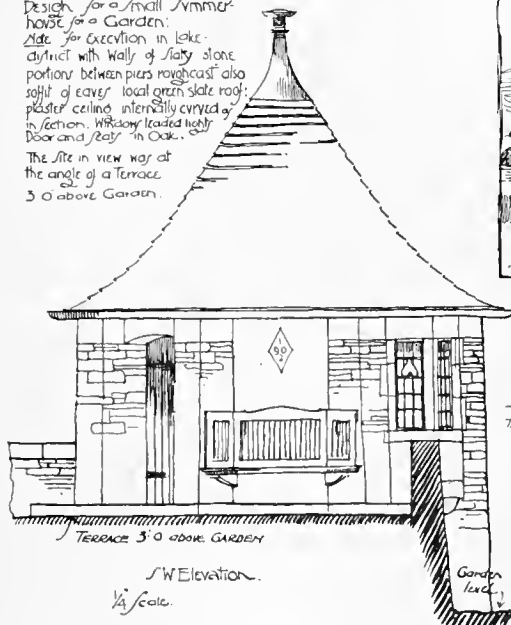 Design for a Small Summer-
house for a Garden:
Note for Execution in Lake-
district with Walls of Slaty stone
portions between piers roughcast also
soffit of eaves local green slate roof:
plaster ceiling internally curved as
in section. Windows leaded lights
Door and seats in Oak.
The site in view was at
the angle of a Terrace
3'0 above Garden.
1
90
TERRACE 3'0 above GARDEN
SW Elevation.
1/4" Scale.
Garden
level